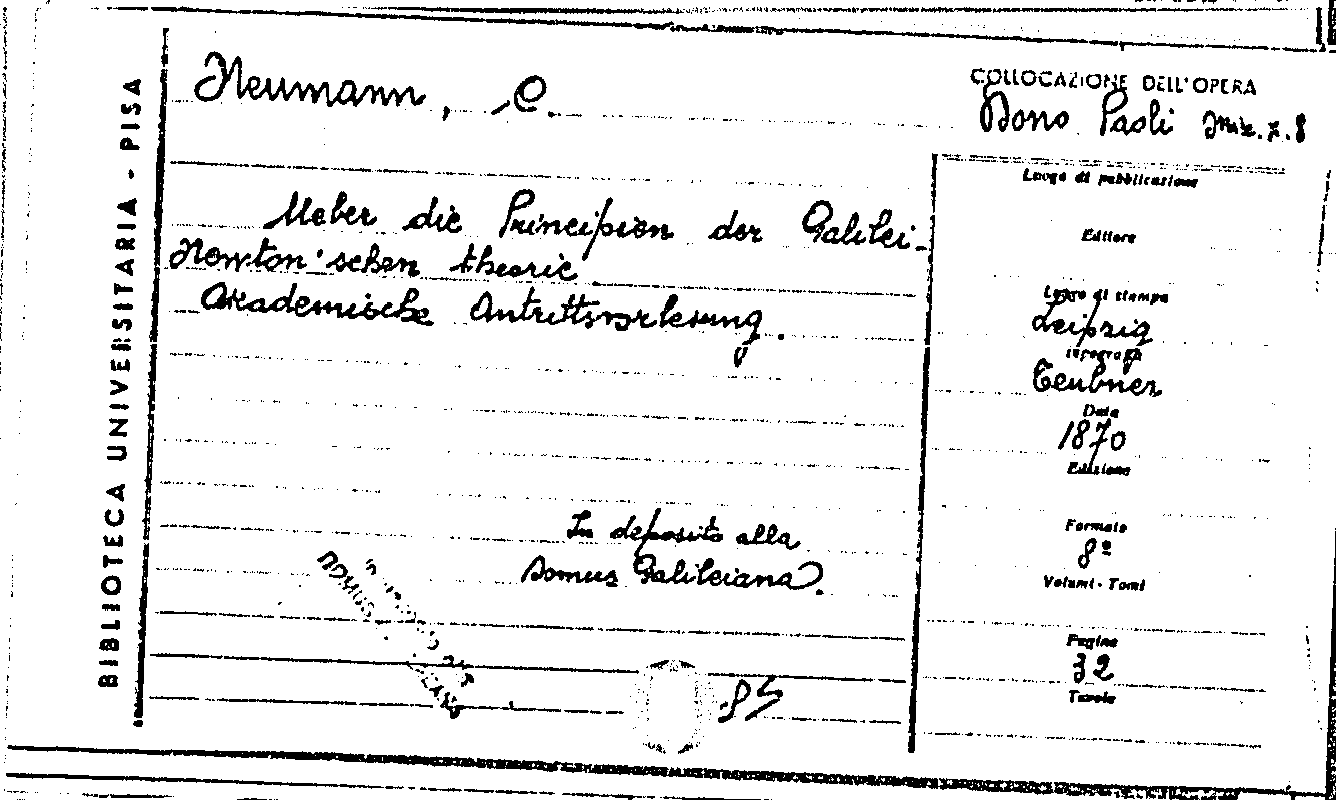 BIBLIOTECA UNIVERSITARIA - PISA
Neumann, C.
COLLOCAZIONE DELL'OPERA
Dono Paoli Misc. 7. 8
Ueber die Principien der Galilei-
Newton'schen theorie
Akademische Antrittsvorlesung.
In deposito alla
Domus Galileiana.
DOMUS
85
Luogo di pubblicazione
Editore
Luogo di stampa
Leipzig
Tipografia
Teubner
Data
1870
Edizione
Formato
8º
Volumi - Tomi
Pagine
32
Tavole